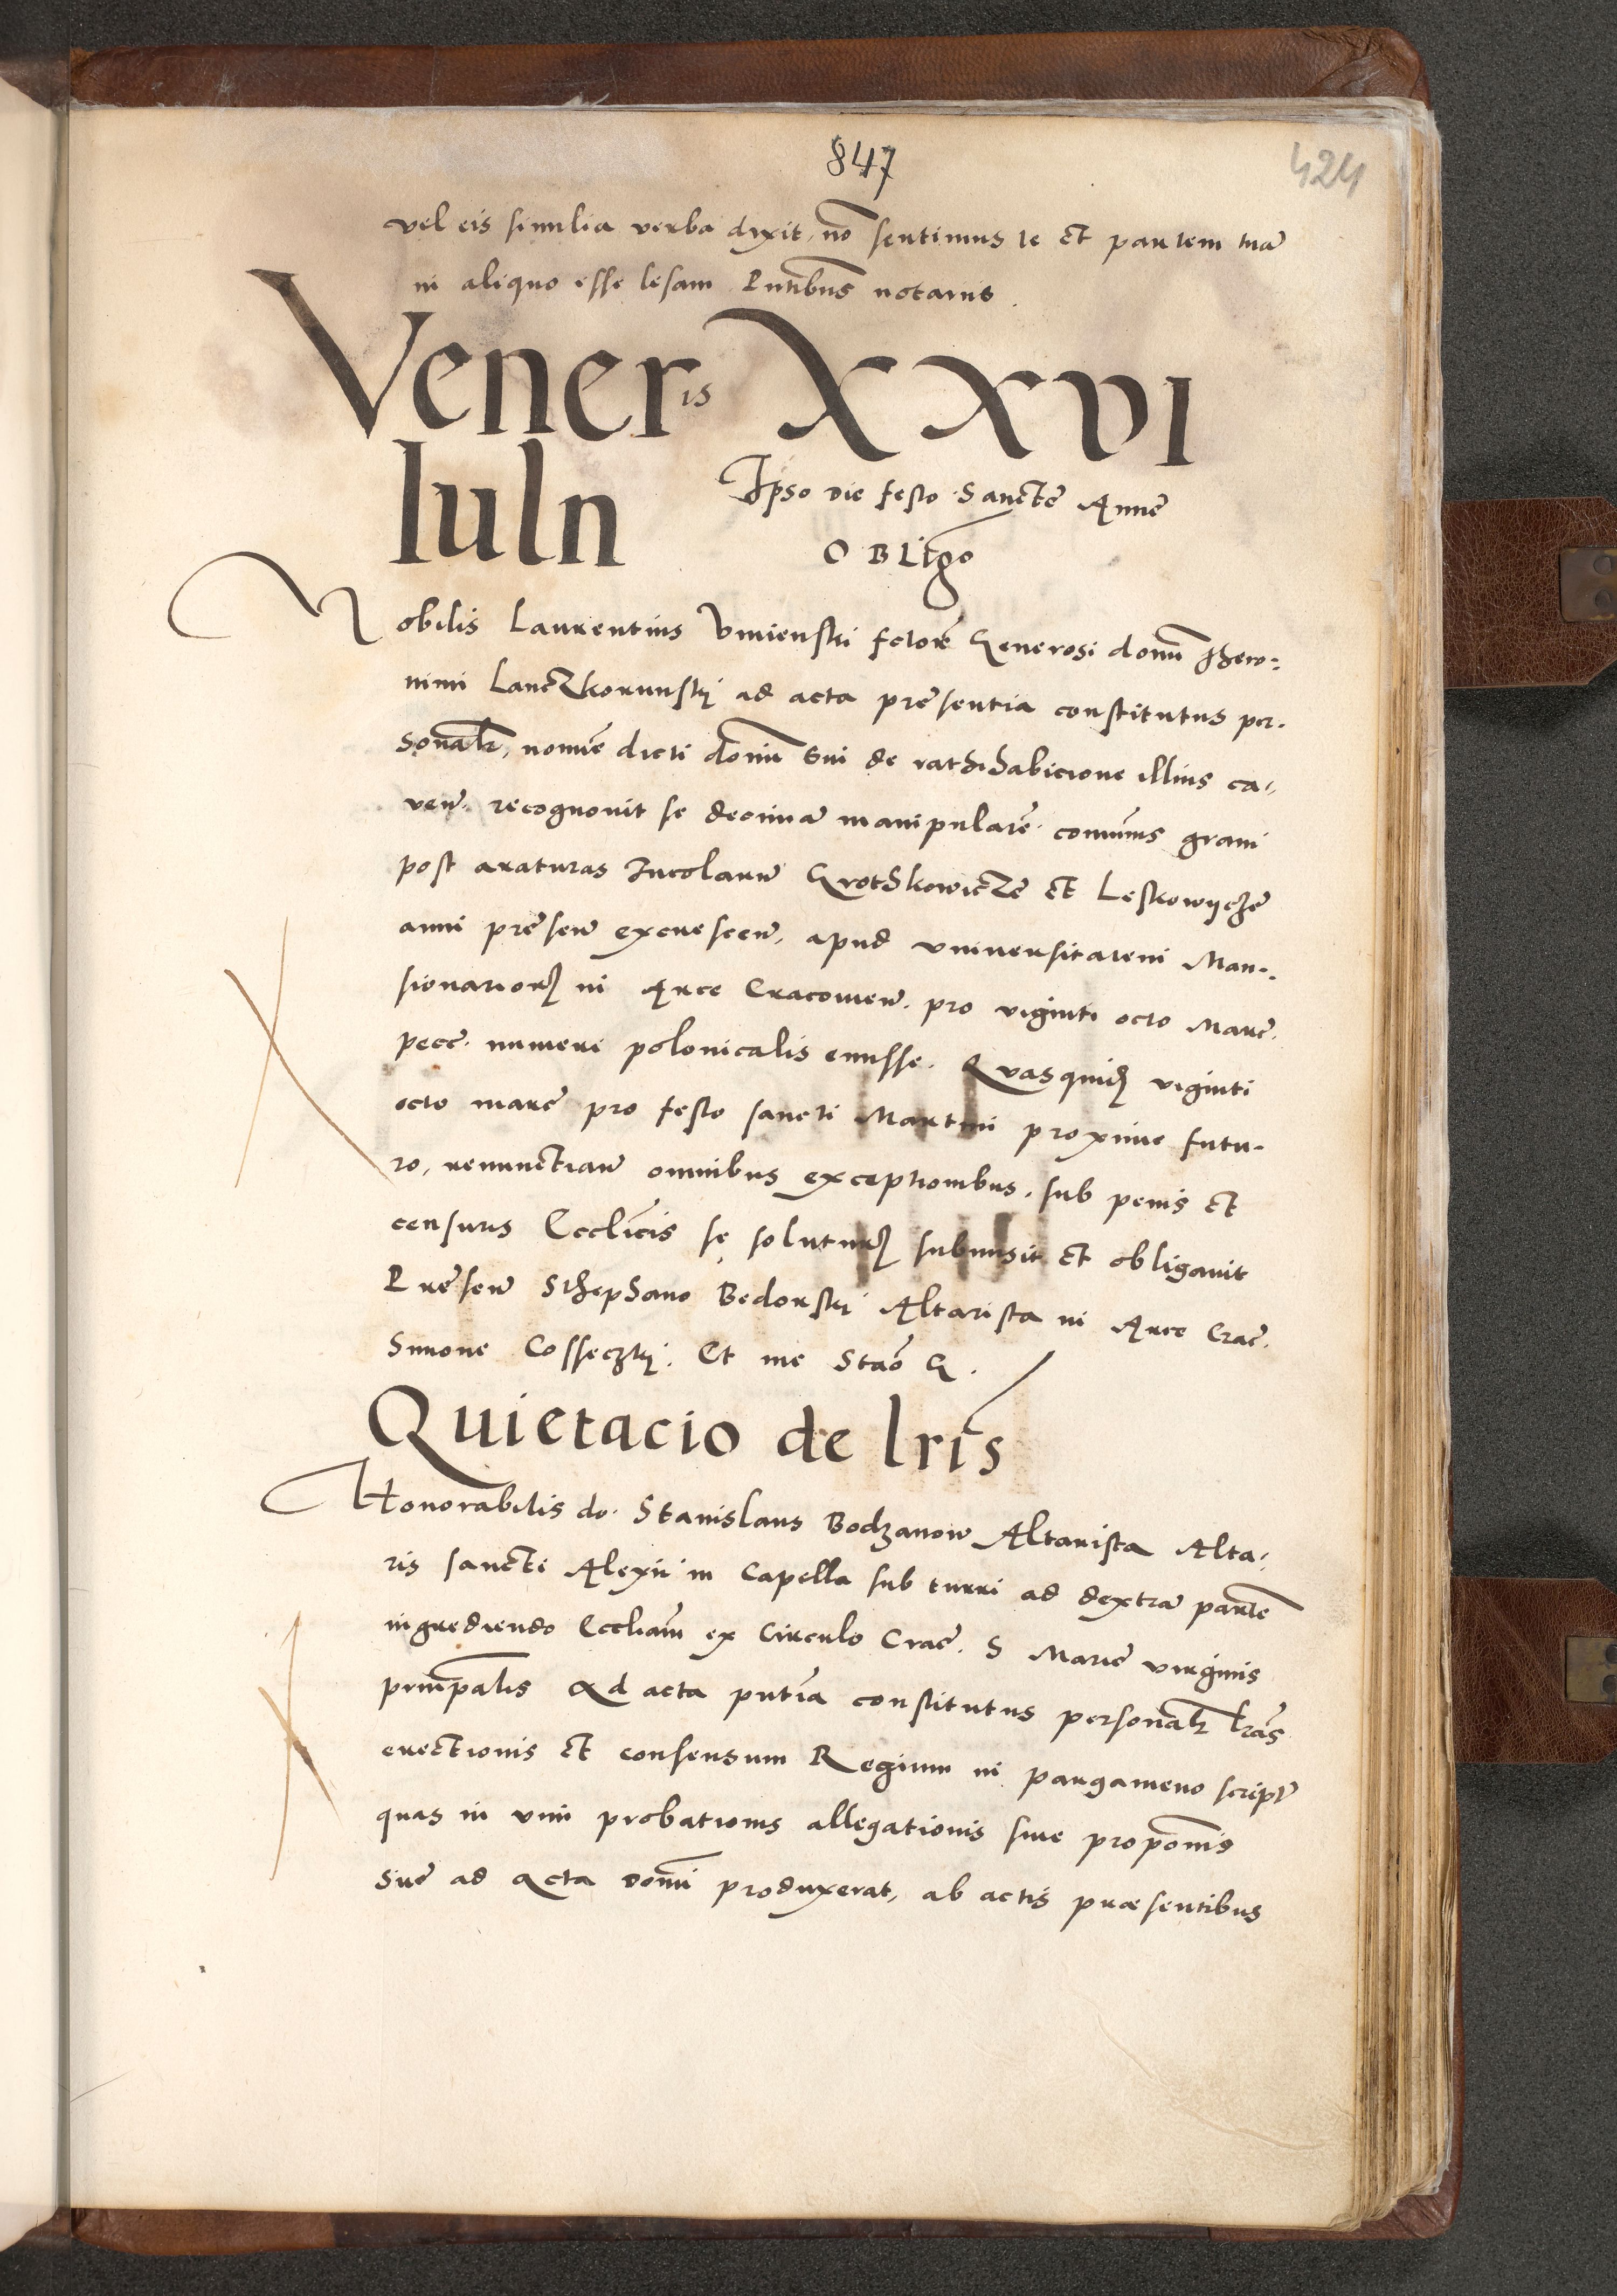 847
424
vel eis similia verba dixit, nō sentimus te et partem tuā
in aliquo esse lesam Pntibus notariis.
Veneris XXVI
Iulii
Ipso die festo Sancte Anne
OBLigō
Nobilis Laurentius Vmienski fctorē Generosi domī Hiero-
nimi Lanczkorunskij ad acta presentia constitutus per-
sonalr, nomīe dicti domī sui de rathihabicione illius ca-
ven. recognovit se decimā manipularē comunis grani
post araturas Incolarum Grothkowicze et Leskowijche
anni presen excrescen. apud universitatem Man-
sionariorz in Arce Cracovien. pro viginti octo Marc.
pecc. numeri polonicalis emisse. Quasquidz viginti
octo marc pro festo sancti Martini proxime futu-
ro, renunctian omnibus exceptionibus, sub penis et
censuris Ecclīcis se soluturz submisit et obligavit
Presen Sthephano Bedonski Altarista in Arce Crac.
Simone Cosseczkij. Et me Staō G.
Quietacio de lris
Honorabilis do. Stanislaus Bodzanow Altarista Alta-
ris sancti Alexii in Capella sub turri ad dextrā partē
ingrediendo Eccliam ex Circulo Crac. S Marie virginis
principalis Ad acta pntia constitutus personalr lras
erectionis et consensum Regium in pargameno script
quas in vim probationis allegationis sive propōnis
Sue ad acta domī produxerat, ab actis præsentibus